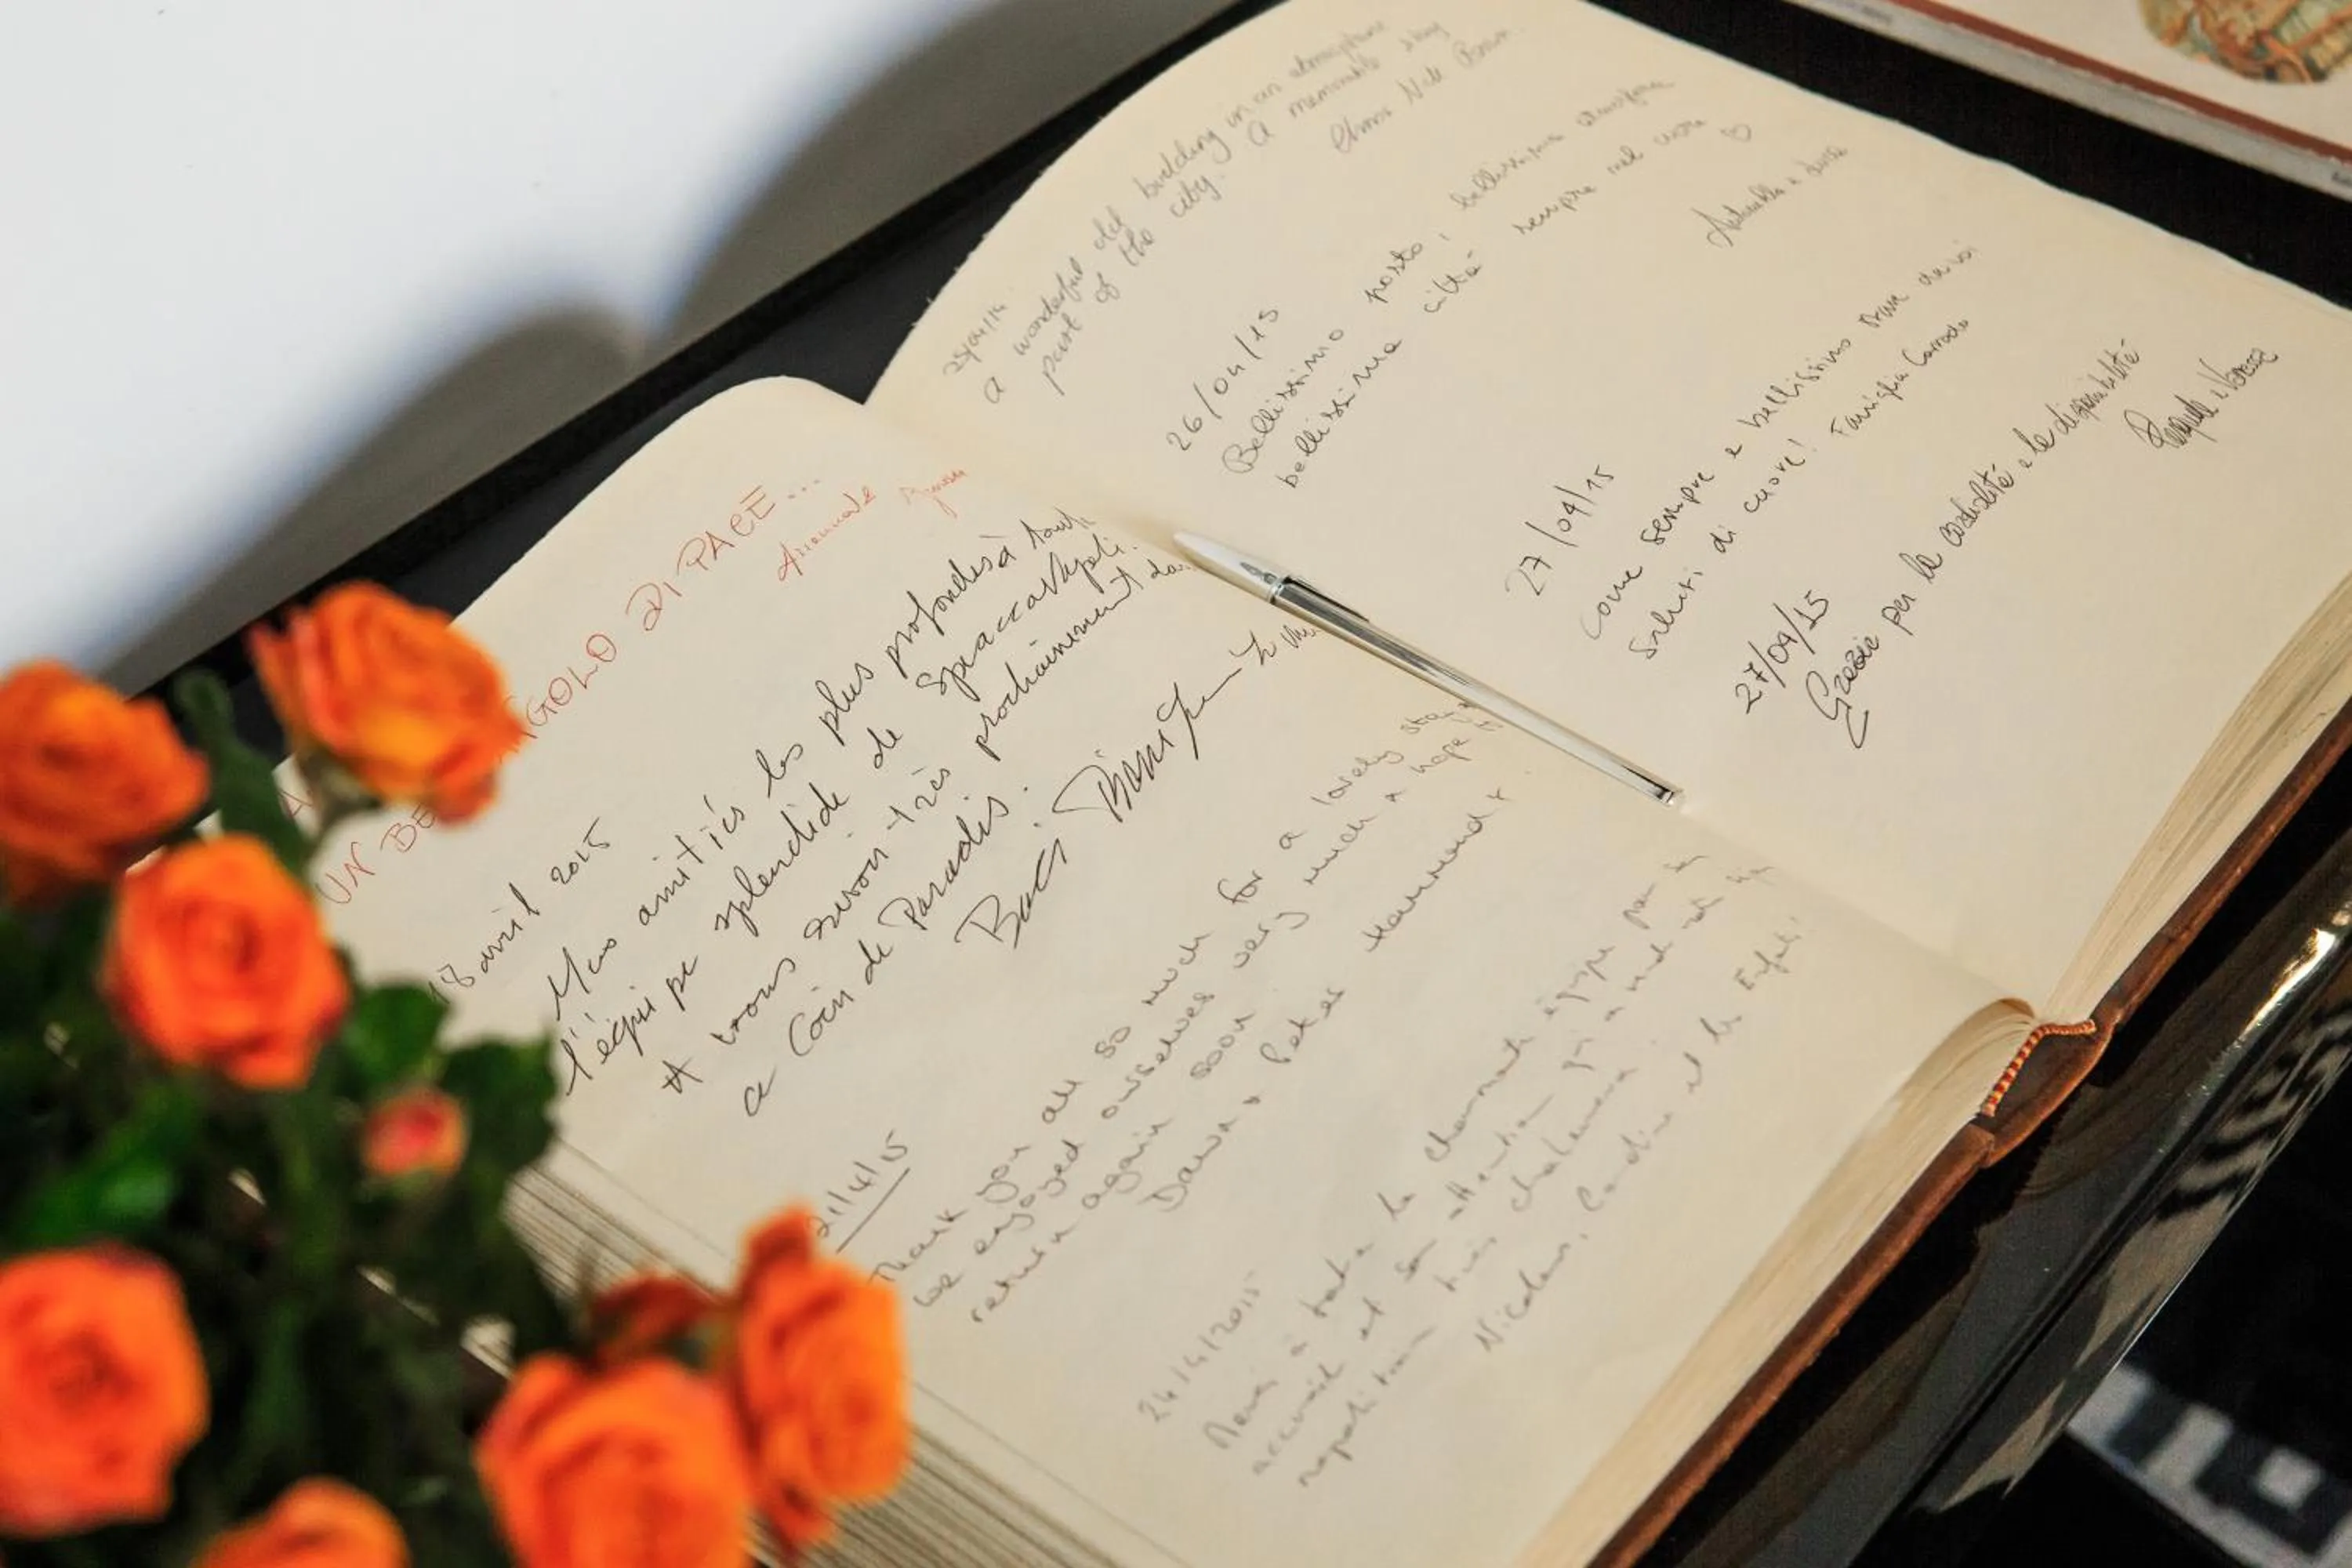 UN BE GOLO DI PACE...
18 avril 2015
Mes amitiés les plus profondes à tout
l'équipe splendide de Spaccanapoli.
A vous revoir très prochainement da
ce Coin de Paradis.
Baci
21/4/15
Thank you all so much for a lovely stay
we enjoyed ourselves very much & hope to
return again soon
Dawn & Peter Hammond
24/4/2015
Merci à toute la charmante équipe pour
accueil et son attention qui a rendu
napolitain très chaleureux.
Nicolas, et les
25/04/14
a wonderful old building in an atmosphere
part of the city. A memorable stay
26/04/15
Bellissimo posto, bellissima atmosfera
bellissima città sempre nel cuore ♡
27/04/15
Come sempre è bellissimo stare da voi
Saluti di cuore! Famiglia
27/04/15
Grazie per la cordialità e la disponibilità